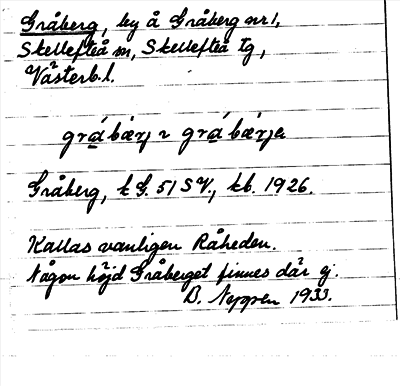 Gråberg, by å Gråberg nr 1,
Skellefteå sn, Skellefteå tg,
Västerb. l.
grábærj ~ grábærja
Gråberg, k G. 51 SV., kb. 1926.
Kallas vanligen Råheden.
Någon höjd Gråberget finnes där ej.
B. Nyppen 1933.